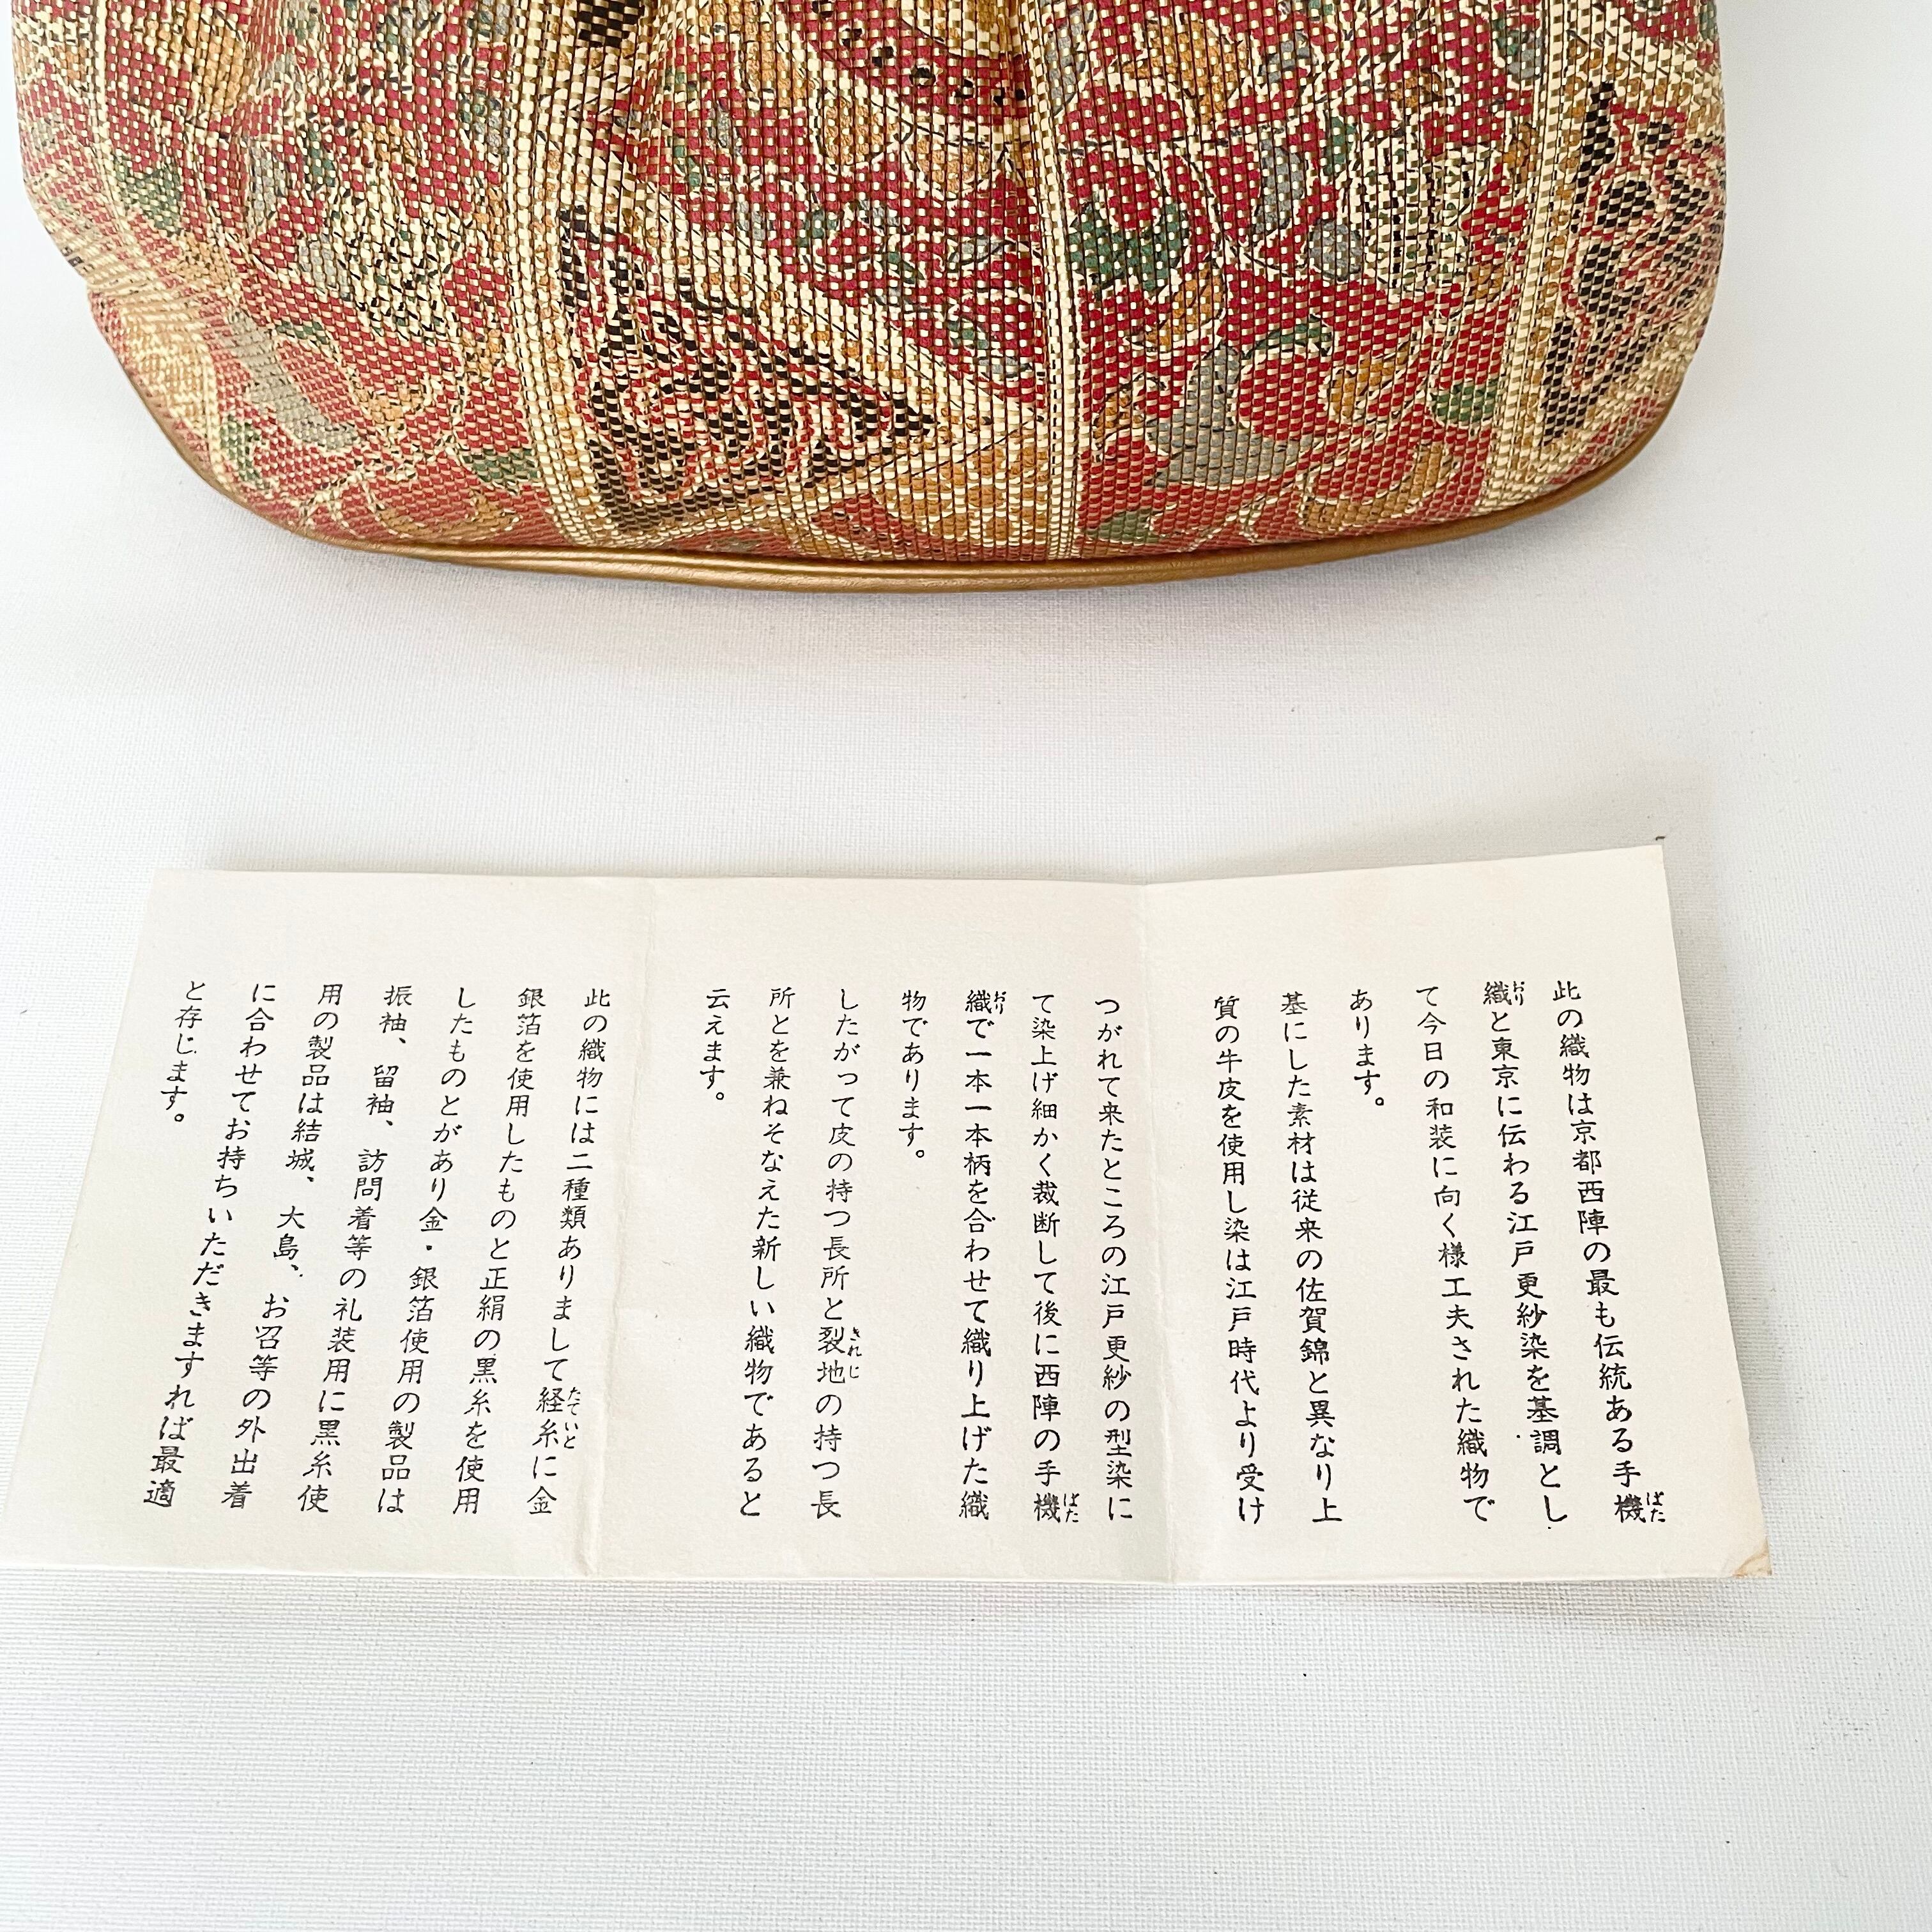 此の織物は京都西陣の最も伝統ある手機ばた
織おりと東京に伝わる江戸更紗染を基調とし
て今日の和装に向く様工夫された織物で
あります。
基にした素材は従来の佐賀錦と異なり上
質の牛皮を使用し染は江戸時代より受け
つがれて来たところの江戸更紗の型染に
て染上げ細かく裁断して後に西陣の手機ばた
織おりで一本一本柄を合わせて織り上げた織
物であります。
したがって皮の持つ長所と裂地きれじの持つ長
所とを兼ねそなえた新しい織物であると
云えます。
此の織物には二種類ありまして経糸たていとに金
銀箔を使用したものと正絹の黒糸を使用
したものとがあり金・銀箔使用の製品は
振袖、留袖、訪問着等の礼装用に黒糸使
用の製品は結城、大島、お召等の外出着
に合わせてお持ちいただきますれば最適
と存じます。